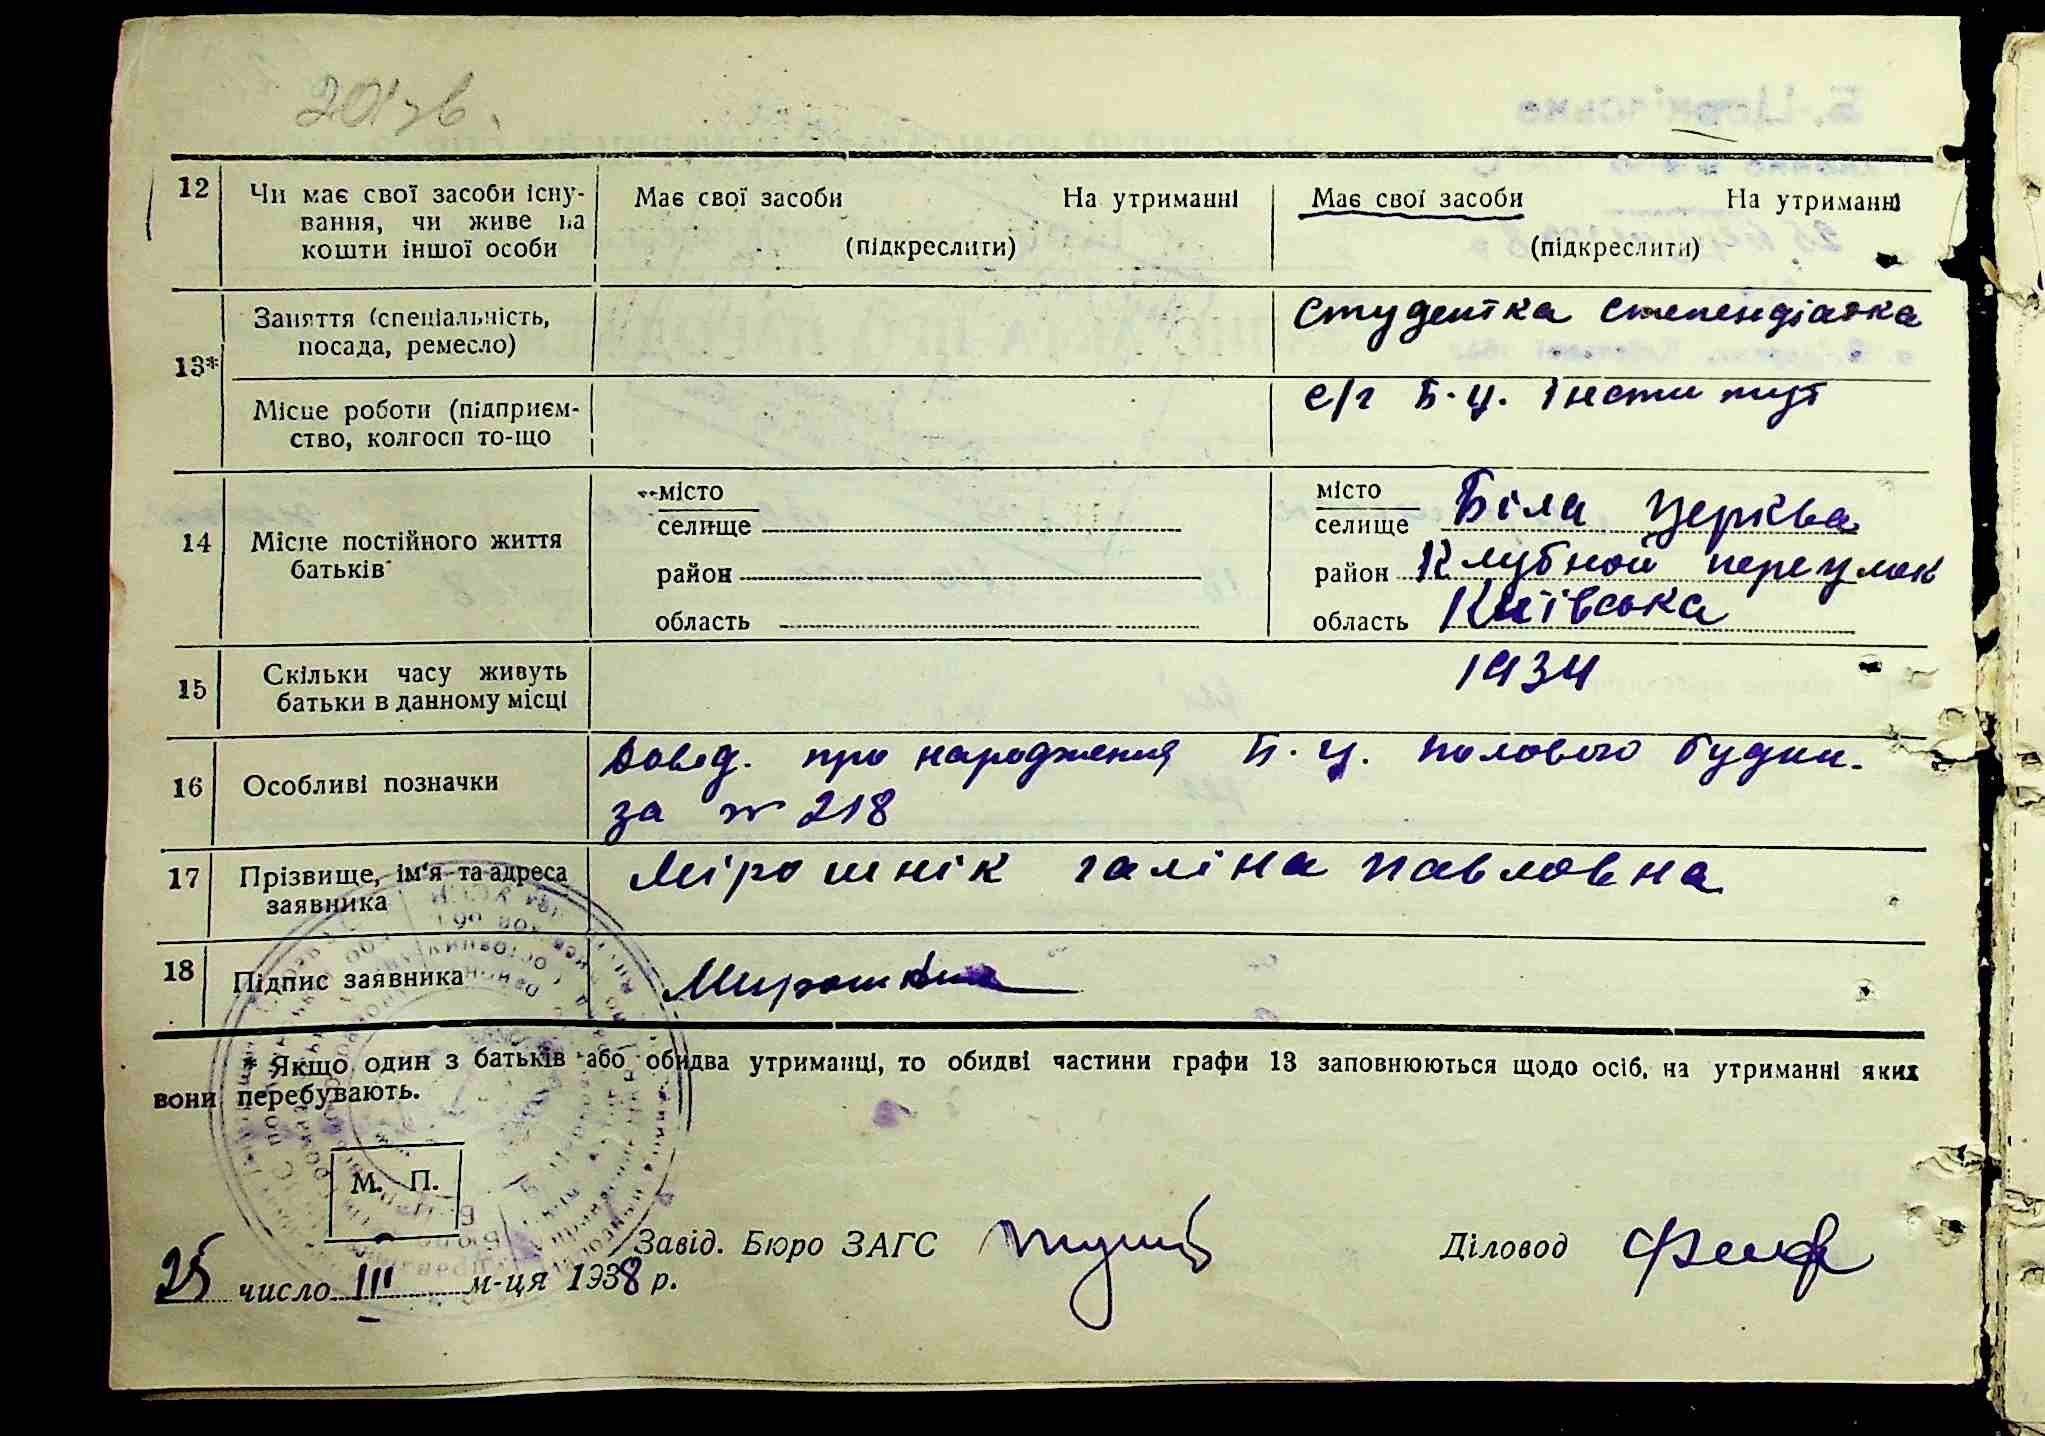 12 Чи має свої засоби існу-
вання, чи живе на
кошти іншої особи
Має свої засоби На утриманні
(підкреслити)
Має свої засоби На утриманні
(підкреслити)
13*
Заняття (спеціальність,
посада, ремесло)
студентка степендіатка
Місце роботи (підприєм-
ство, колгосп то-що
с/г Б.Ц. Інститут
14 Місце постійного життя
батьків
місто
селище
район
область
місто
селище Біла Церква
район Клубной переулок
область Київська
15 Скільки часу живуть
батьки в данному місці
1934
16 Особливі позначки
Довед. про народження Б.Ц. Полового будин.
за № 218
17 Прізвище, ім'я та адреса
заявника
Мірошнік Галіна Павловна
18 Підпис заявника
* Якщо один з батьків або обидва утриманці, то обидві частини графи 13 заповнюються щодо осіб, на утриманні яких
вони перебувають.
М. П.
Завід. Бюро ЗАГС
Діловод
25 число III м-ця 1938 р.